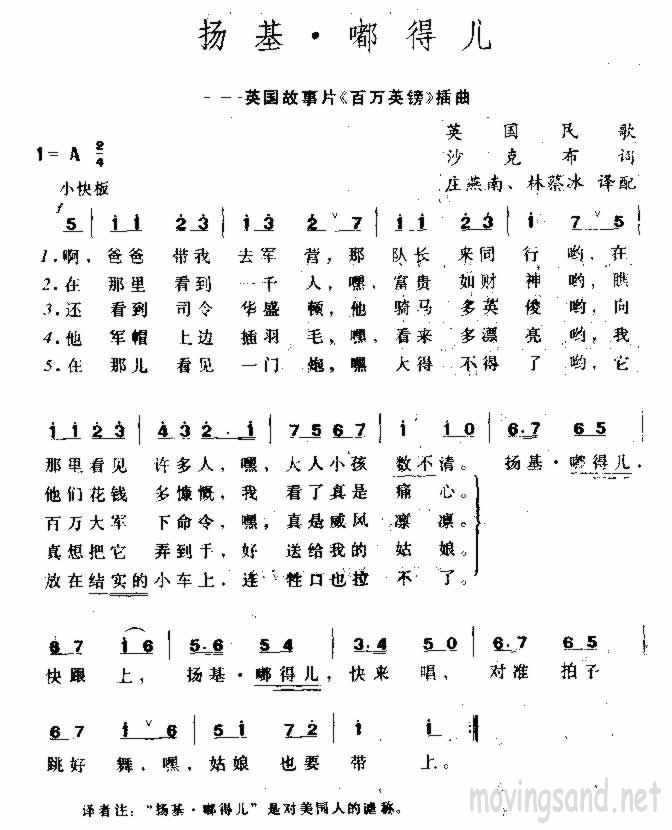 扬基·嘟得儿
———英国故事片《百万英镑》插曲
英国民歌
1=A 2/4
沙克布 词
小快板
庄燕南、林蔡冰 译配
f
5 | 1 1 2 3 | 1 3 2 5 | 1 1 2 3 | 1 7 5 |
1.啊,爸爸 带我 去军 营,那 队长 来同 行哟,在
2.在 那里 看到 一千 人,嘿,富贵 如财 神哟,瞧
3.还 看到 司令 华盛 顿,他 骑马 多英 俊哟,向
4.他 军帽 上边 插羽 毛,嘿,看来 多漂 亮哟,我
5.在 那儿 看见 一门 炮,嘿 大得 不得 了哟,它
1 1 2 3 | 4 3 2 · 1 | 7 5 6 7 | 1 1 0 | 6 · 7 6 5 |
那里看见 许多人,嘿,大人小孩 数不清。 扬基·嘟得儿,
他们花钱 多慷慨,我 看了真是 痛心。
百万大军 下命令,嘿,真是威风 凛凛。
真想把它 弄到手,好 送给我的 姑娘。
放在结实的小车上,连 牲口也拉 不了。
6 7 1 6 | 5 · 6 5 4 | 3 · 4 5 0 | 6 · 7 6 5 |
快跟 上, 扬基·嘟得儿,快来 唱, 对准 拍子
6 7 1 6 | 5 1 7 2 | 1 1 :||
跳好 舞,嘿,姑娘 也要 带 上。
译者注:“扬基·嘟得儿”是对美国人的谑称。
movingsand.net